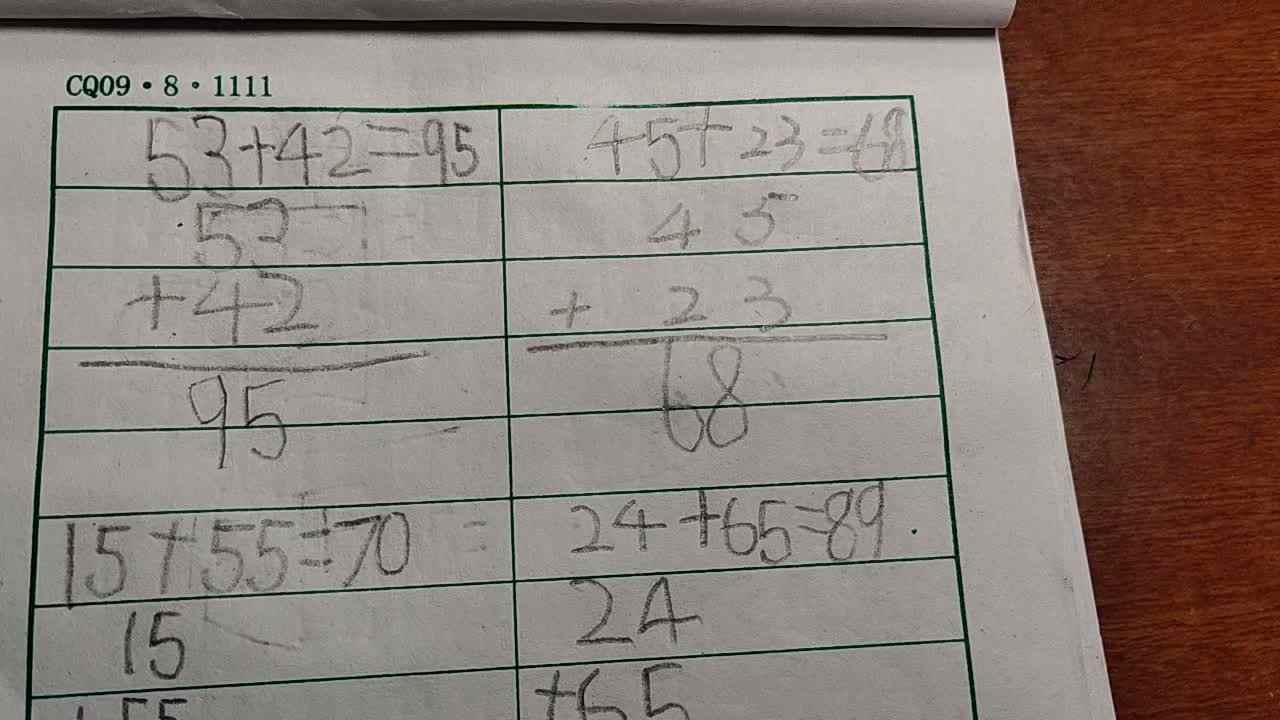 CQ09・8・1111
53+42=95
53
+42
95
45+23=68
45
+ 23
68
15+55=70
15
+55
24+65=89
24
+65